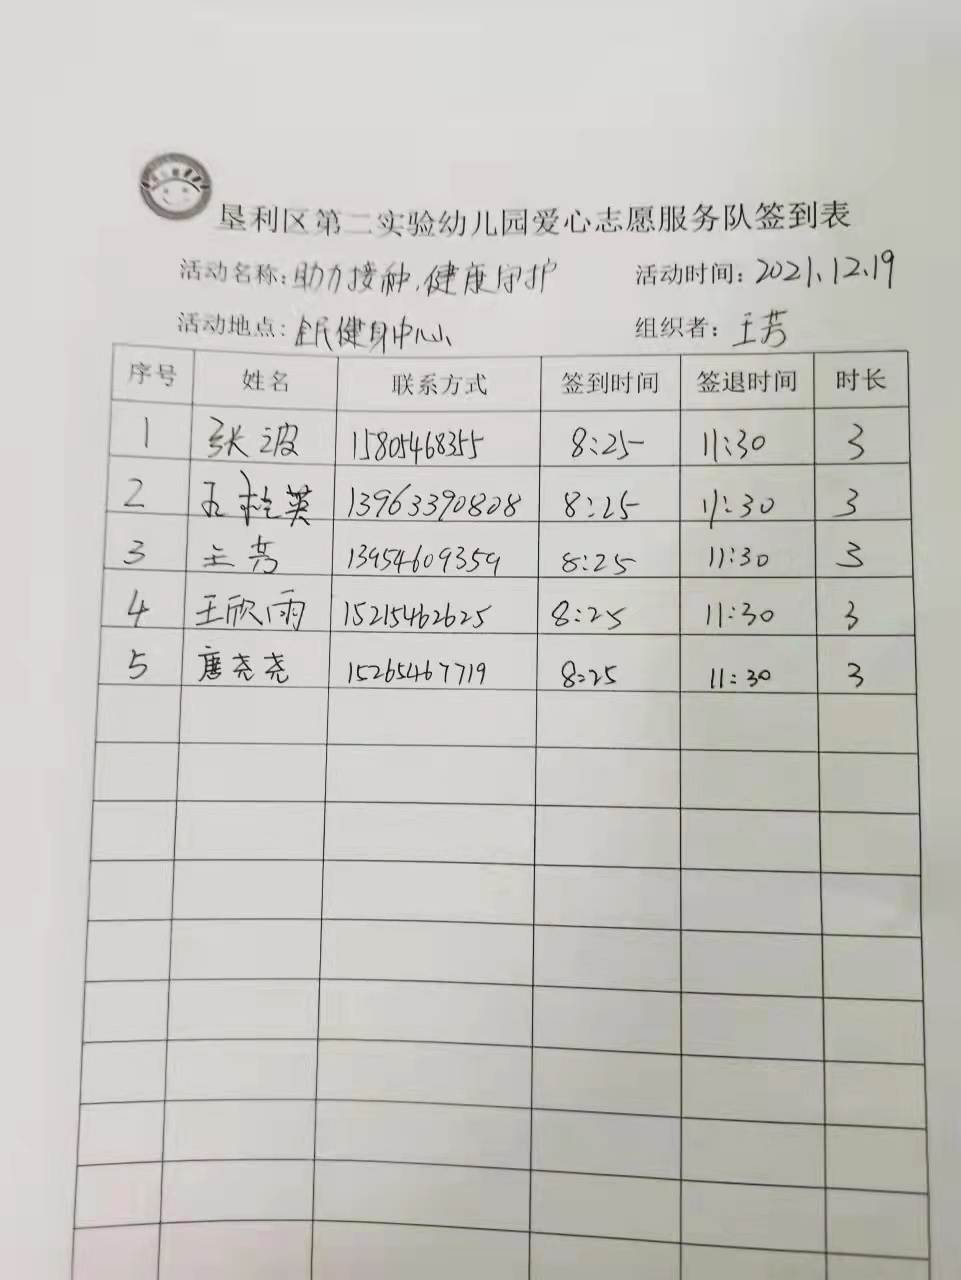 垦利区第二实验幼儿园爱心志愿服务队签到表
活动名称:助力接种,健康守护 活动时间:2021.12.19
活动地点:全民健身中心 组织者:王芳
序号 姓名 联系方式 签到时间 签退时间 时长
1 张波 15805468355 8:25 11:30 3
2 孔桂英 13963390808 8:25 11:30 3
3 王芳 13954609359 8:25 11:30 3
4 王欣雨 15215462625 8:25 11:30 3
5 唐尧尧 15265467719 8:25 11:30 3